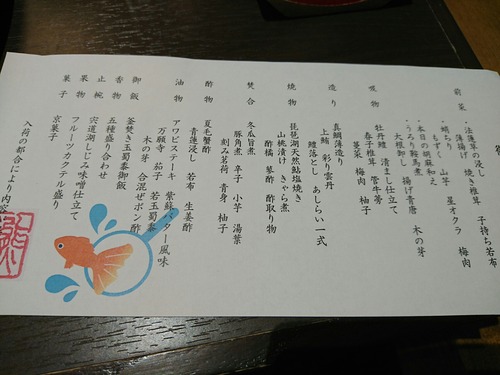 前菜
法蓮草の浸し 子持ち若布
薄揚げ 焼き椎茸
・蛸ちり 山芋 星オクラ 梅肉
もずく
・本日の胡麻和え
・うろり鞍馬煮 木の芽
大根卸し 揚げ青唐
吸物
牡丹鱧 清まし仕立て
春子椎茸 管牛蒡
蔓菜 梅肉 柚子
造り
真鯛薄造り
上鮪 彩り雲丹
鱧落とし あしらい一式
焼物
琵琶湖天然鮎塩焼き
山桃漬け きゃら煮
酢橘 蓼酢 酢取り物
焚合
冬瓜旨煮
豚角煮 小芋 湯葉
辛子
刻み茗荷 青身 柚子
酢物
夏毛蟹酢
青蓮浸し 若布 生姜酢
油物
アワビステーキ 紫蘇バター風味
万願寺 茄子 若玉蜀黍
木の芽 合混ぜポン酢
御飯
釜焚き玉蜀黍御飯
香物
五種盛り合わせ
止椀
宍道湖しじみ味噌仕立て
果物
フルーツカクテル盛り
菓子
京菓子
入荷の都合により内容